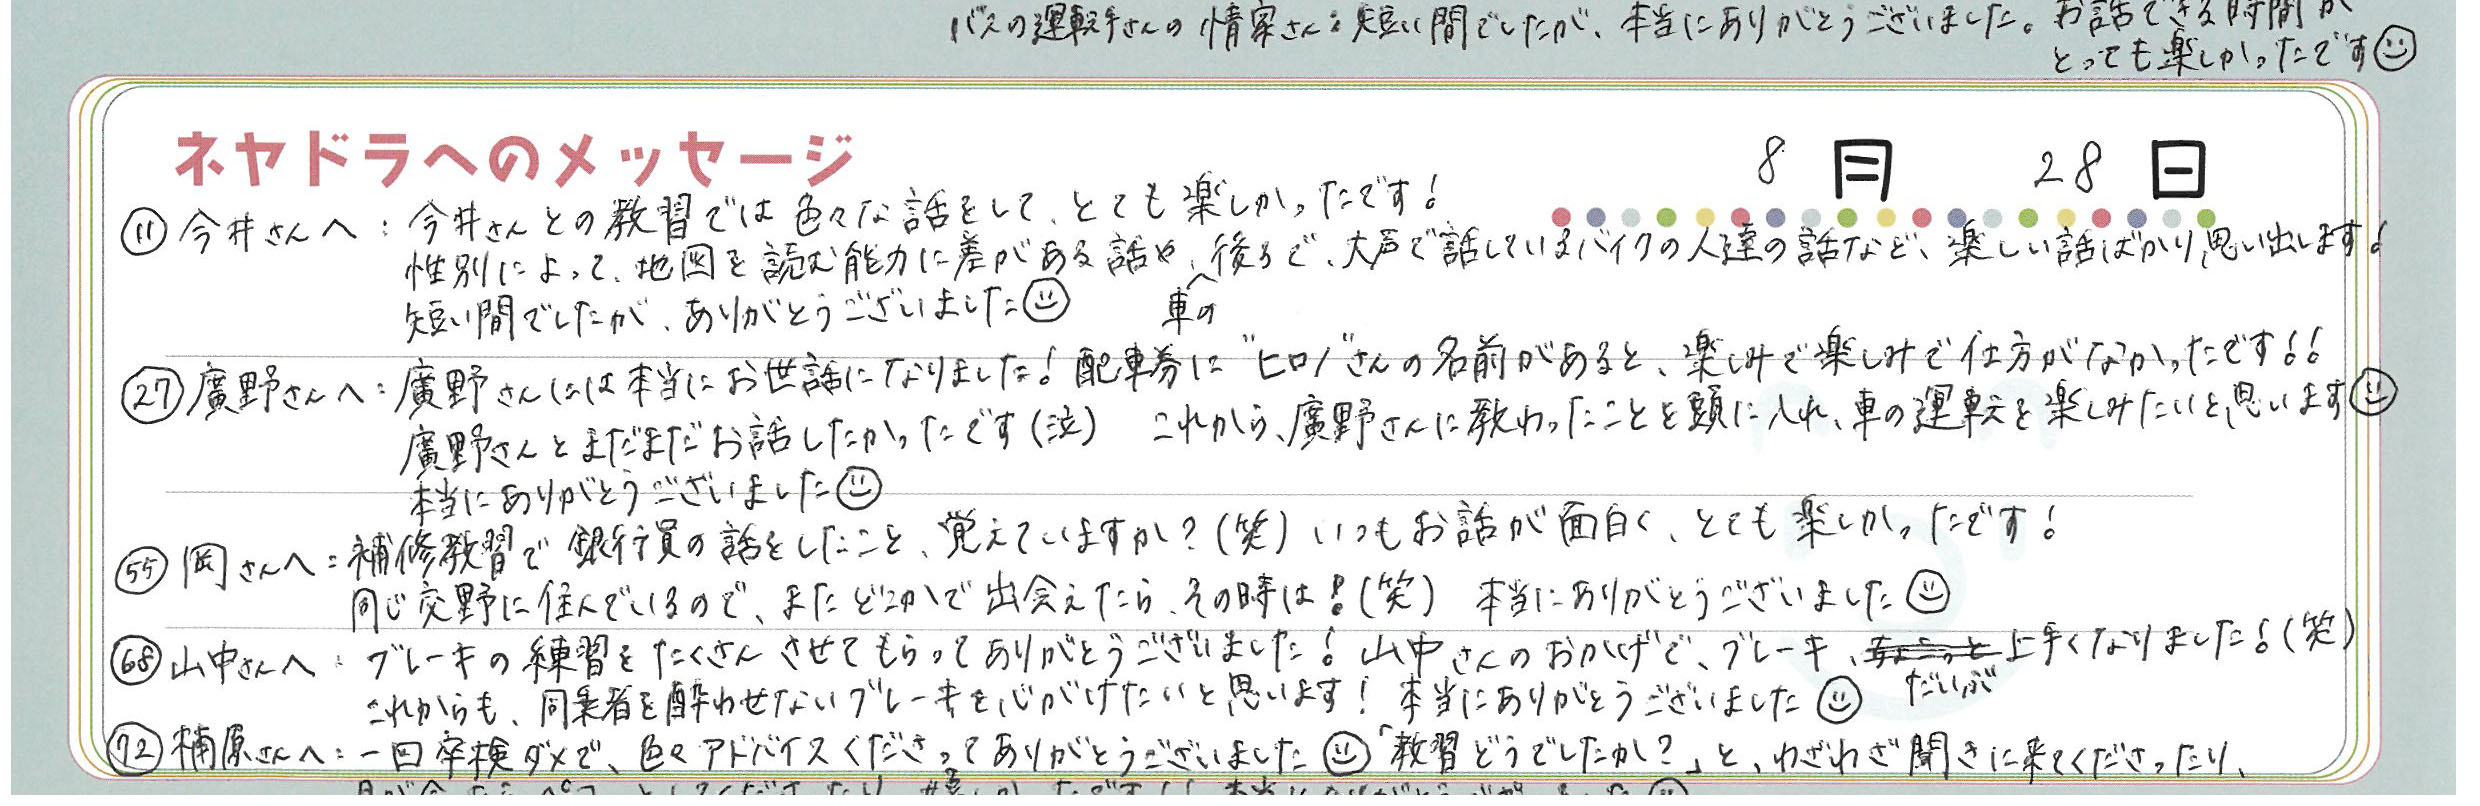 バスの運転手さんの情家さん：短い間でしたが、本当にありがとうございました。お話できる時間が
とっても楽しかったです
ネヤドラへのメッセージ
8月 28日
⑪ 今井さんへ：今井さんとの教習では色々な話をして、とても楽しかったです！
性別によって、地図を読む能力に差がある話や、車の後ろで、大声で話しているバイクの人達の話など、楽しい話ばかり思い出します！
短い間でしたが、ありがとうございました
㉗ 廣野さんへ：廣野さんには本当にお世話になりました！配車券に"ヒロノ"さんの名前があると、楽しみで楽しみで仕方がなかったです！！
廣野さんとまだまだお話したかったです(泣) これから、廣野さんに教わったことを頭に入れ、車の運転を楽しみたいと思います
本当にありがとうございました
55 岡さんへ：補修教習で銀行員の話をしたこと、覚えていますか？(笑) いつもお話が面白く、とても楽しかったです！
同じ交野に住んでいるので、またどこかで出会えたら、その時は！(笑) 本当にありがとうございました
68 山中さんへ：ブレーキの練習をたくさんさせてもらってありがとうございました！山中さんのおかげで、ブレーキ、だいぶ上手くなりました！(笑)
これからも、同乗者を酔わせないブレーキを心がけたいと思います！本当にありがとうございました
72 楠原さんへ：一回卒検ダメで、色々アドバイスくださってありがとうございました「教習どうでしたか？」と、わざわざ聞きに来てくださったり、